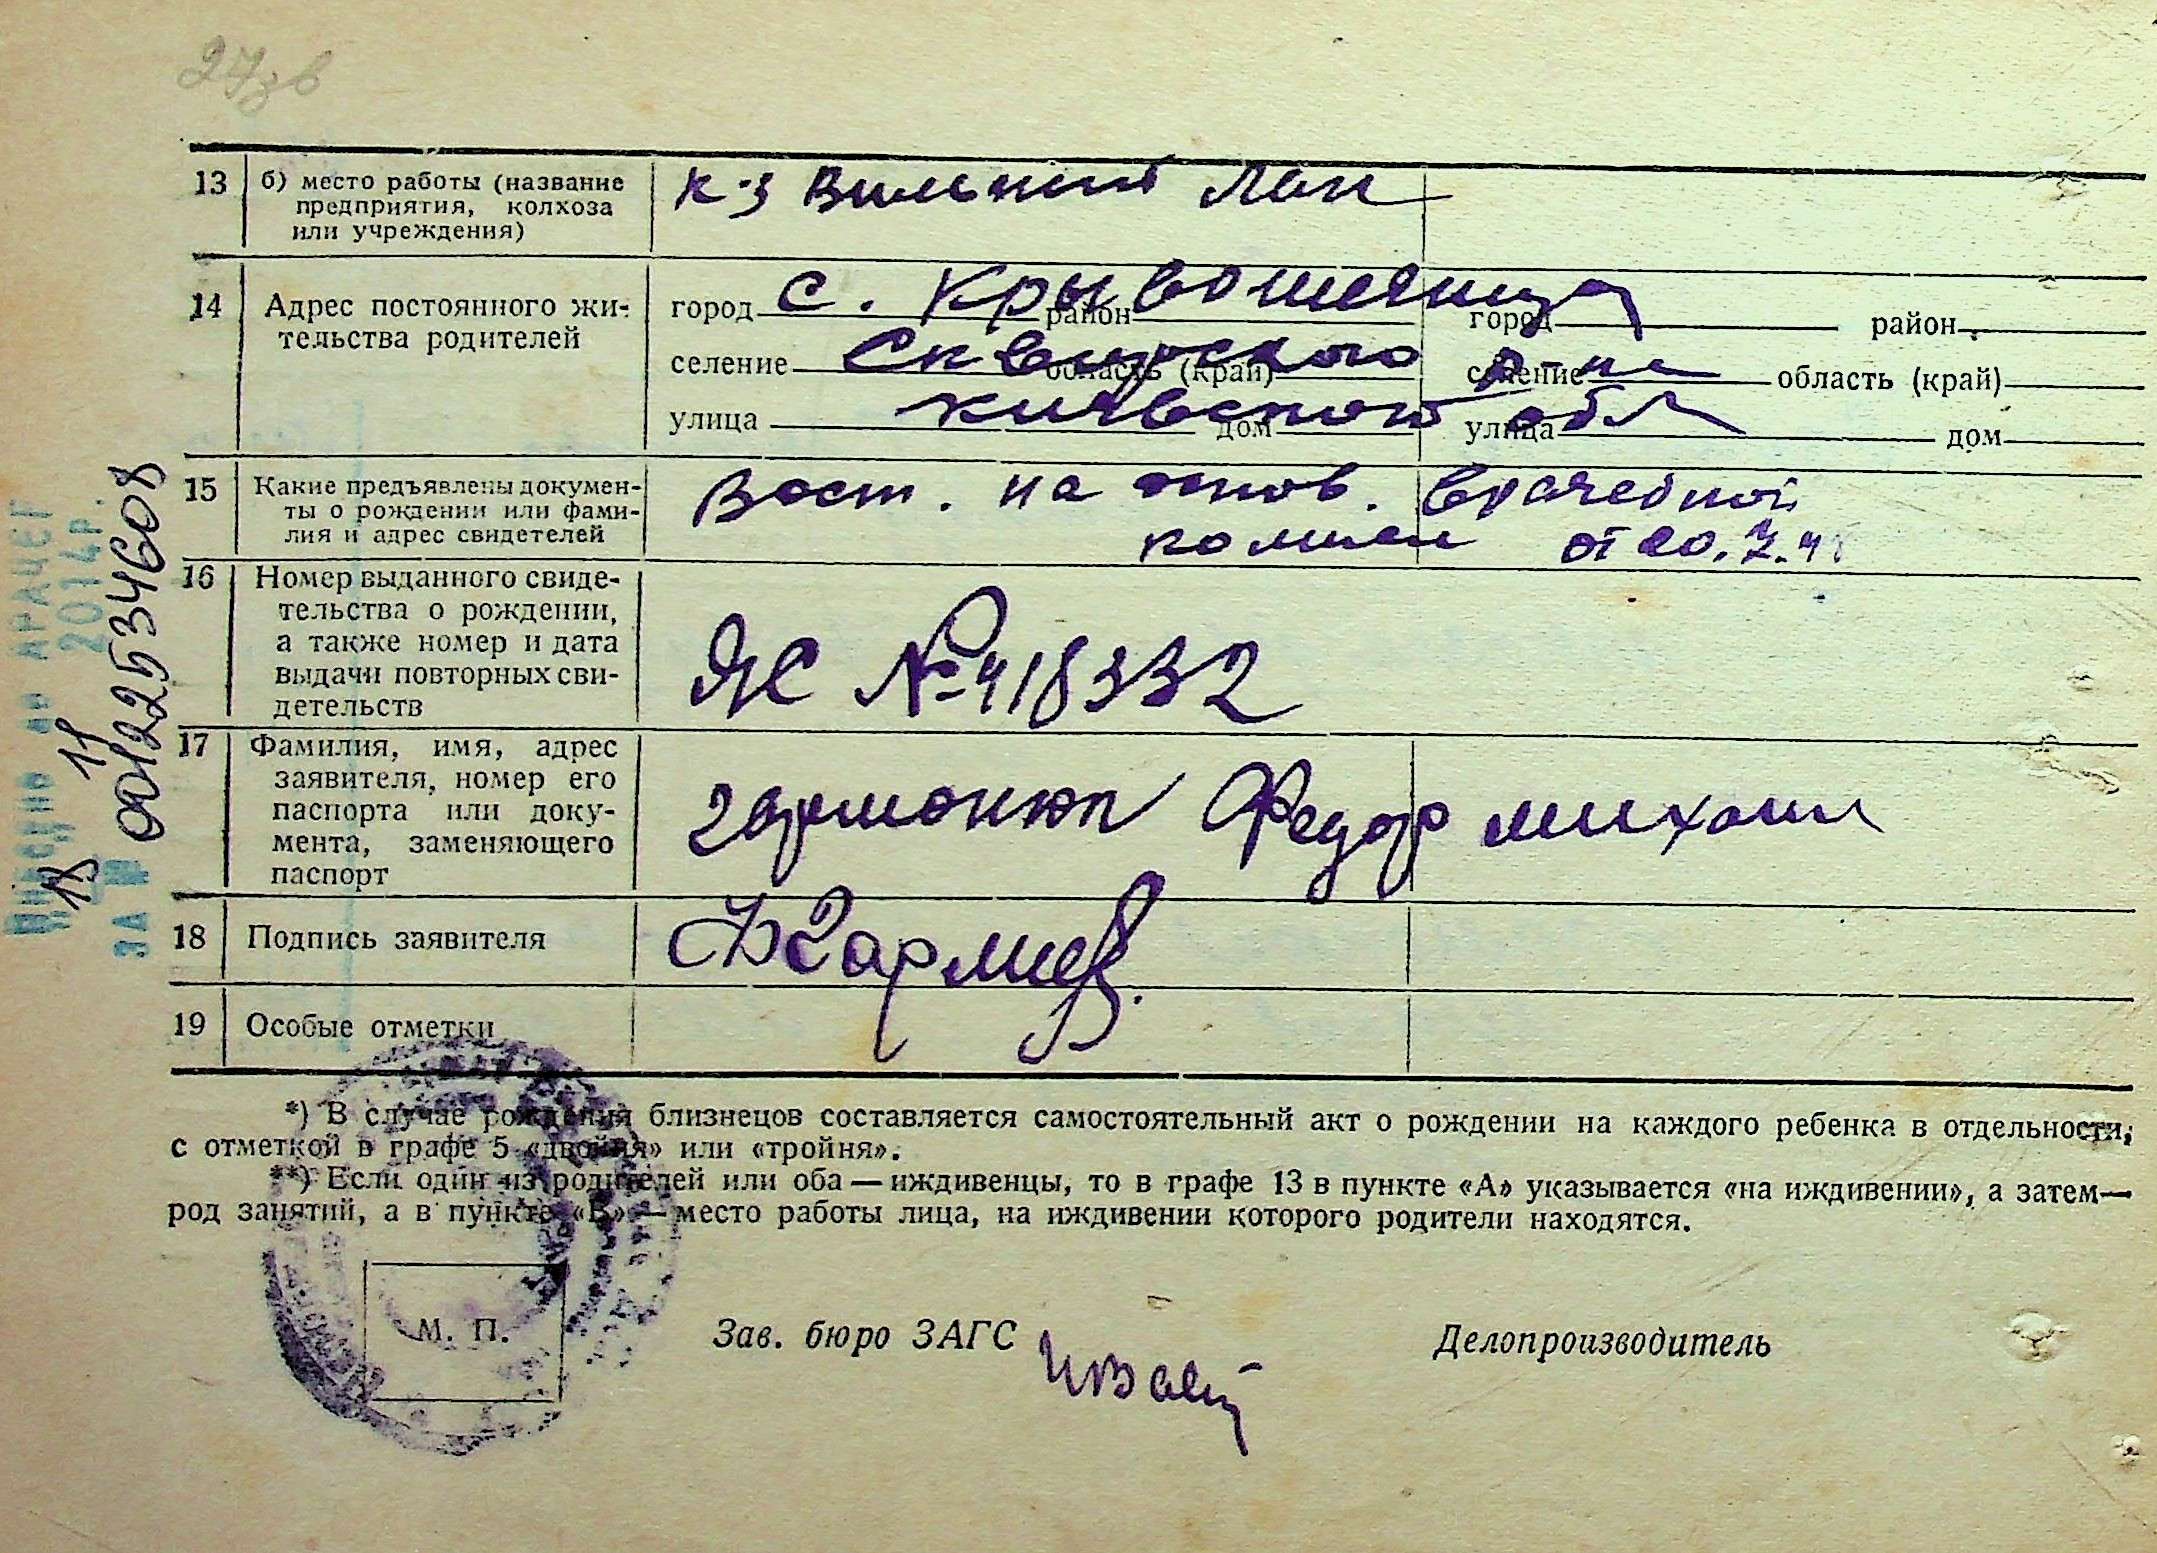 13 б) место работы (название предприятия, колхоза или учреждения) к-з Вильний Лан
14 Адрес постоянного жительства родителей
город с. Крывошеянца район город район
селение Сквирского р-на область (край) селение область (край)
улица Киевской обл дом улица дом
15 Какие предъявлены документы о рождении или фамилия и адрес свидетелей Вост. на основ. врачебной
комисии от 20.7.4
16 Номер выданного свидетельства о рождении, а также номер и дата выдачи повторных свидетельств ЯС № 418332
17 Фамилия, имя, адрес заявителя, номер его паспорта или документа, заменяющего паспорт Федор Михаил
18 Подпись заявителя
19 Особые отметки
*) В случае рождения близнецов составляется самостоятельный акт о рождении на каждого ребенка в отдельности,
с отметкой в графе 5 «двойня» или «тройня».
**) Если один из родителей или оба — иждивенцы, то в графе 13 в пункте «А» указывается «на иждивении», а затем—
род занятий, а в пункте «Б» — место работы лица, на иждивении которого родители находятся.
М. П. Зав. бюро ЗАГС Делопроизводитель
2014р.
00122534608
18 11